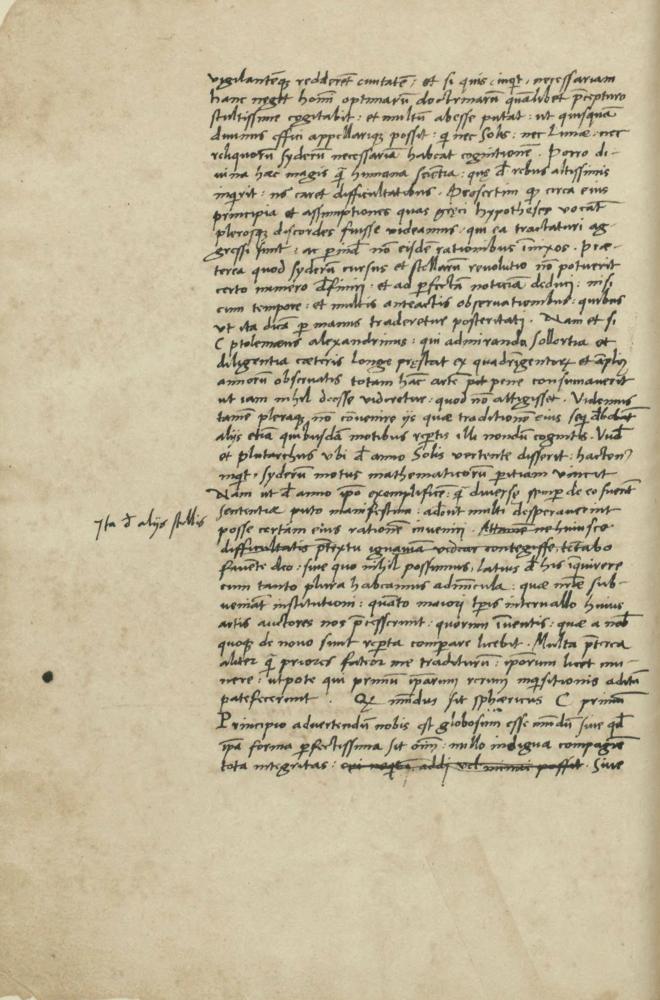 vigilantēqꝫ redderēt ciuitatē: et si quis, inqit, necessariam
hanc negēt homī optimarū doctrinarū qualibet p̄cepturo
stultissime cogitabit: et multū abesse putat: ut quisquā
diuinus effici appellariqꝫ possit: qͥ nec Solis: nec Lunæ: nec
reliquorū syderū necessariā habeat cognitionē. Porro di-
uina hæc magis q̄ humana sciētia: quæ đ rebus altissimis
inqirit: nō caret difficultatibus. Præsertim qꝫ circa eius
principia et assumptiones quas græci hypotheses vocāt
plerosqꝫ discordes fuisse videamus: qui ea tractaturi ag-
gressi sunt: ac ꝑind̄ nō eisdē rationibus inixos. Præ-
terea quod syderū cursus et stellarū reuolutio nō potuerit
certo numero đfiniri: et ad ꝑfectā noticiā deduci: nisi
cum tempore: et multis anteactis obseruationibus: quibus
ut ita dicā ꝑ manus traderetur posteritati. Nam et si
C ptolemæus alexandrinus: qui admiranda sollertia et
diligentia cæteris longe præstat ex quadrigentorꝫ et āplius
annorū obseruatis totam hāc artē pene consumauerit
ut iam nihil deesse videretur: quod nō attigisset. Videmus
tamē pleraqꝫ nō cōuenire ijs quæ traditionē eius seqi đbebāt
alijs etiā quibusdā motibus rep̱tis illi nondū cognitis. Vnđ
et plutarchus ubi đ anno Solis vertente disserit: hactenꝰ
inqt: syderū motus mathematicorū ꝑitiam vincit
Nam ut đ anno ip̄o exemplificē: q̄ diuersæ semꝑ de eo fuerīt
sententiæ puto manifestum: adeo ut multi desperauerint
posse certam eius rationē inueniri. Attamē ne huiusce
Ita đ alijs stellis
difficultatis p̄textu ignauiā videar contegisse, tētabo
fauēte deo: sine quo nihil possumus: latius đ his īquirere
cum tanto plura habeamus adminicula: quæ nr̄æ sub-
ueniāt institutioni: quāto maiori tp̄is interuallo huius
artis auctores nos p̄cesserunt: quorum īuentis: quæ a nobis
quoqꝫ de nouo sunt rep̱ta comparare licebit. Multa p̄terea
aliter q̄ priores fateor me traditurū: ip̄orum licet mu-
nere: utpote qui primū ip̄arum rerum inqisitionis aditū
patefecerunt. Qꝫ mūdus sit sphæricus C primū
Principio aduertendū nobis est globosum esse mūdū siue qđ
ip̄a forma ꝑfectissima sit oīm: nullo indigua compagine
tota integritas: cui neqꝫ addi vel minui possit. Siue